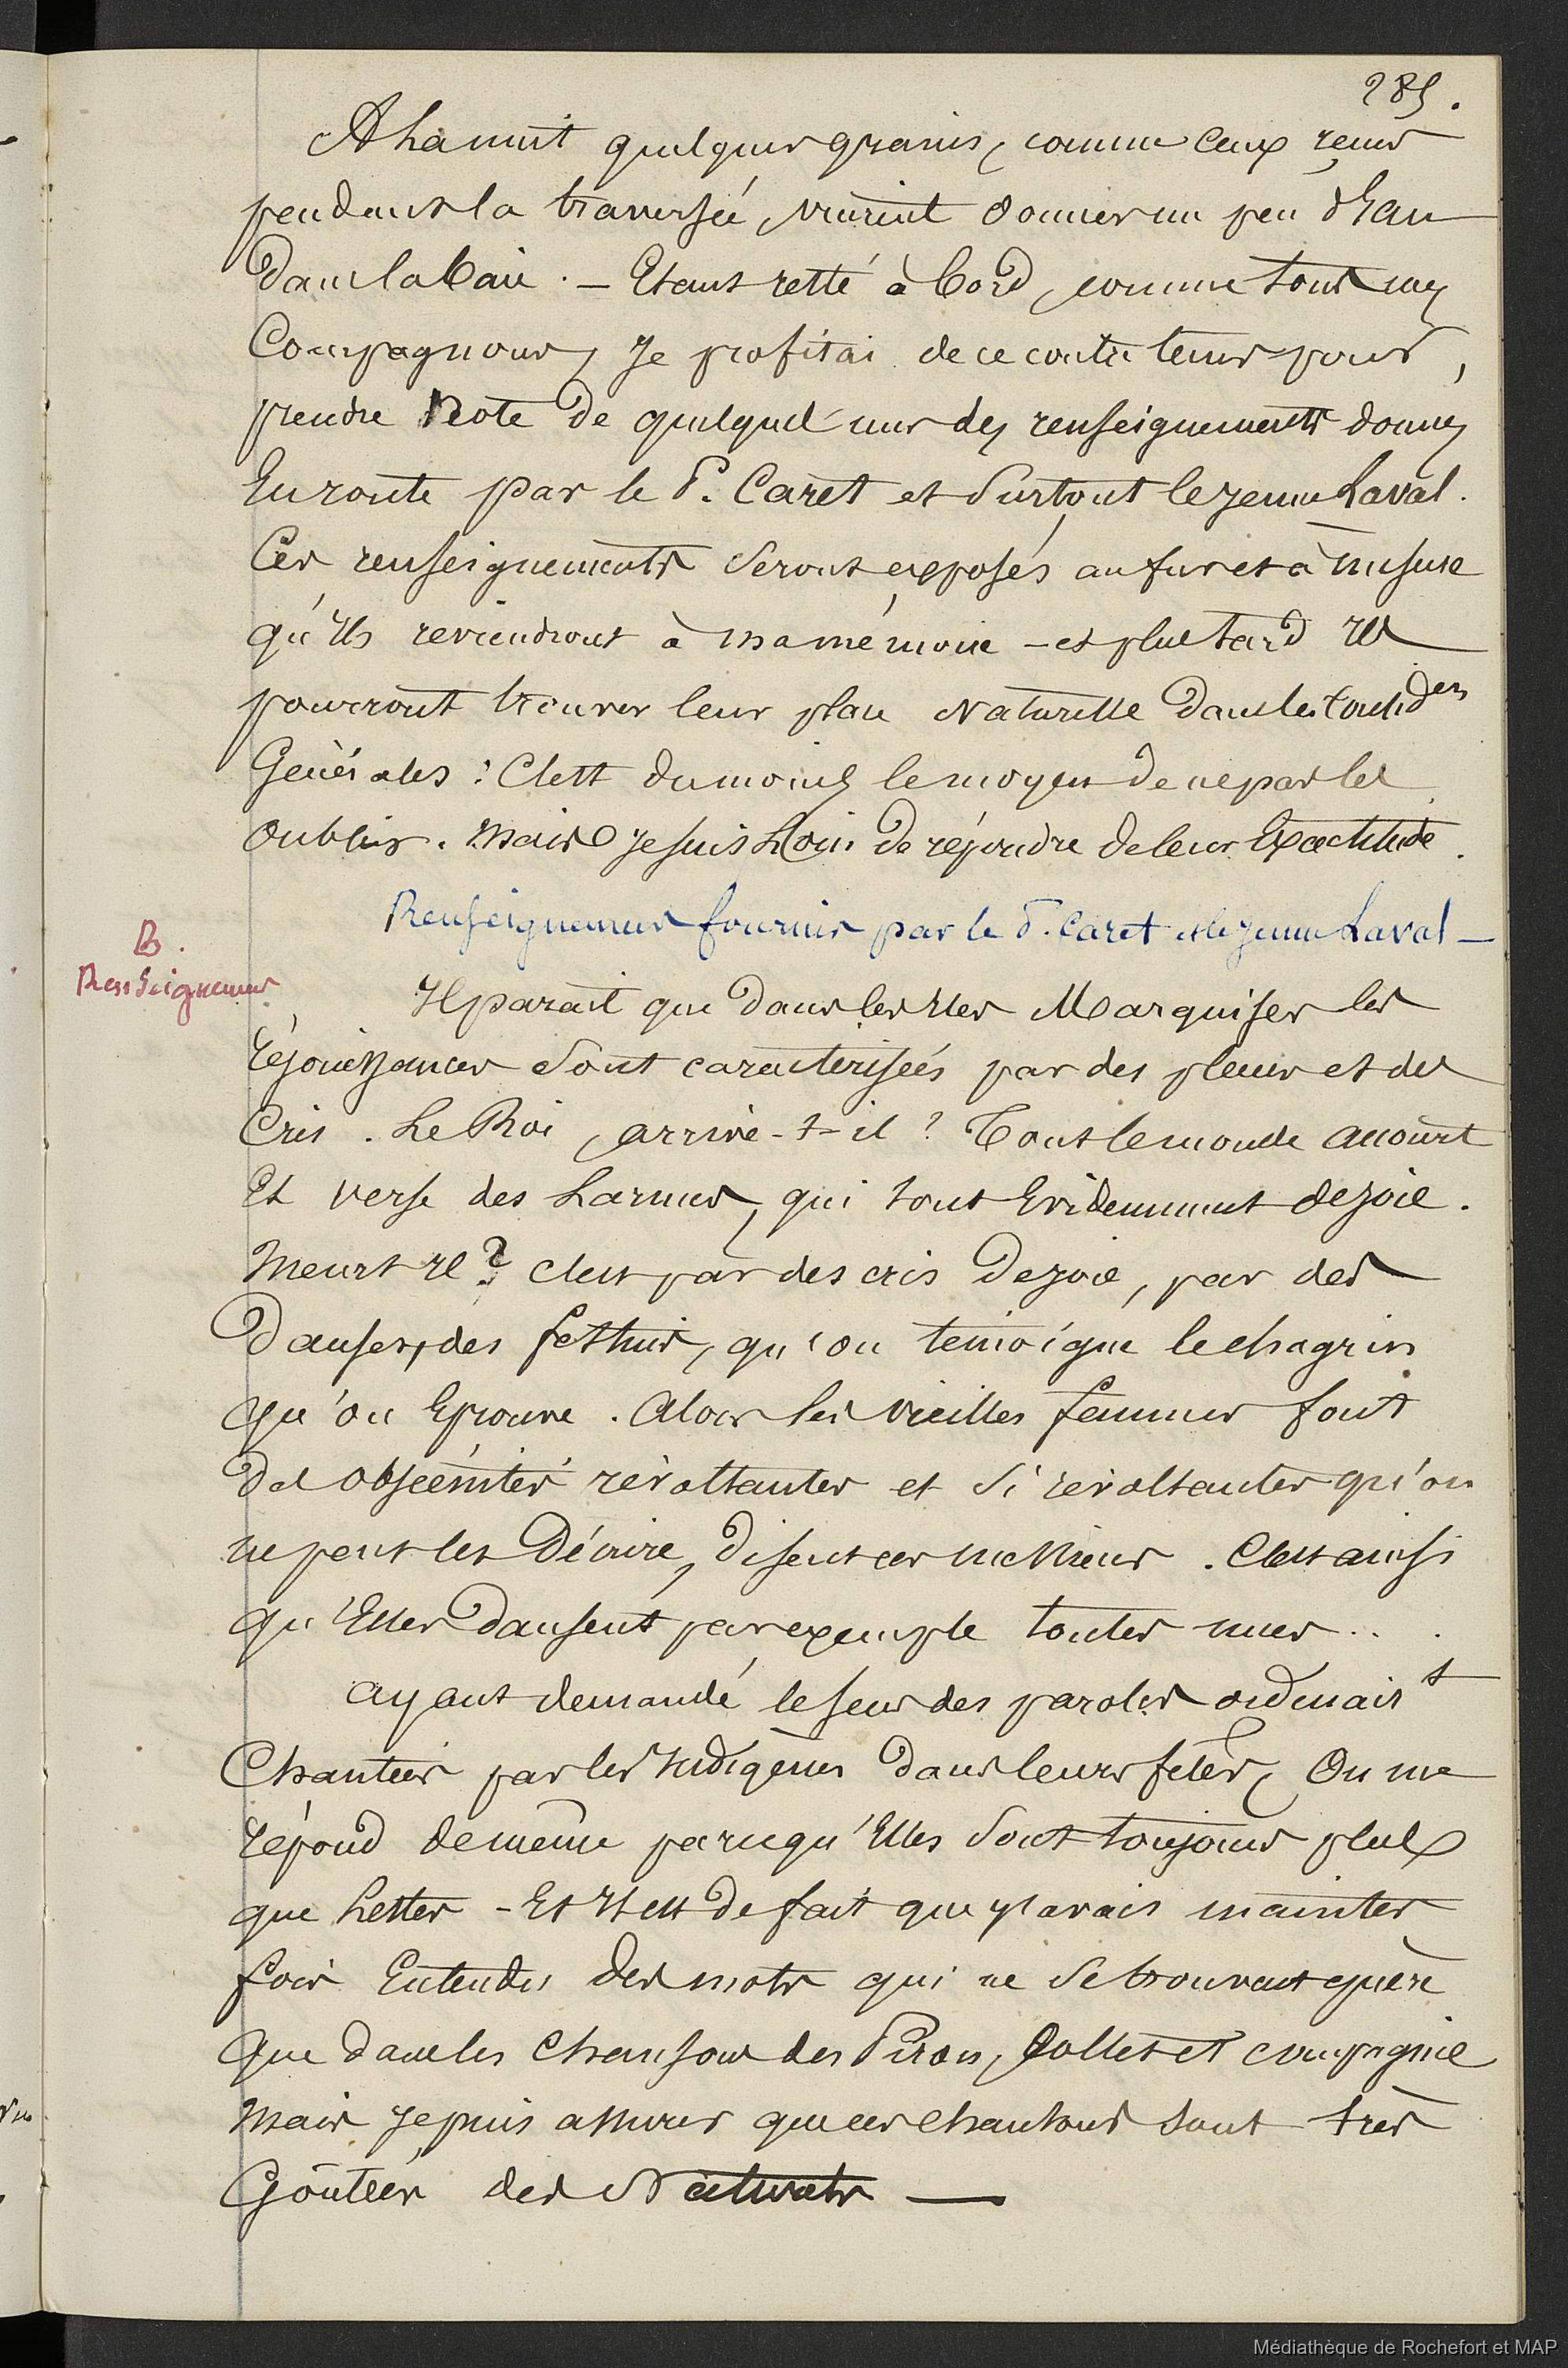 285.
A la nuit quelques grains, comme ceux reçus
pendant la traversée, vinrent donner un peu d'Eau
dans la baie. — Etant resté à bord, comme tous mes
Compagnons, Je profitai de ce contre tems pour,
prendre Note de quelques uns des renseignements donnés
En route par le P. Caret et Surtout le jeune Laval.
Ces renseignements Seront exposés au fur et à mesure
qu'Ils reviendront à ma mémoire - et plus tard Ils
pourront trouver leur place Naturelle dans les Considons
Générales : C'est du moins le moyen de ne pas les
Oublier. Mais Je suis Loin de répondre de leur Exactitude.
Renseignemens fournis par le P. Caret et le jeune Laval —
B.
Renseignemens
Il parait que dans les Iles Marquises les
réjouissances Sont caractérisées par des pleurs et des
Cris. Le Roi, arrive-t-il ? Tout le monde accourt
Et verse des Larmes, qui sont Evidemment de joie.
Meurt Il ? C'est par des cris de joie, par des
Danses, des festins, qu'on témoigne le chagrin
qu'on Eprouve. Alors les vieilles femmes font
des obscénités révoltantes et Si révoltantes qu'on
ne peut les Décrire, disent ces messieurs. C'est ainsi
qu'Elles dansent par exemple toutes nues...
ayant demandé le sens des paroles ordinairt
Chantées par les Indigènes dans leurs fêtes, On me
répond de même parcequ'Elles Sont toujours plus
que Lestes - Et Il est de fait que j'avais maintes
fois Entendu des mots qui ne Se trouvent guère
que dans les Chansons des Piron, Collet et compagnie
Mais je puis assurer que ces chansons sont très
Goûtées des Naturels —
Médiathèque de Rochefort et MAP